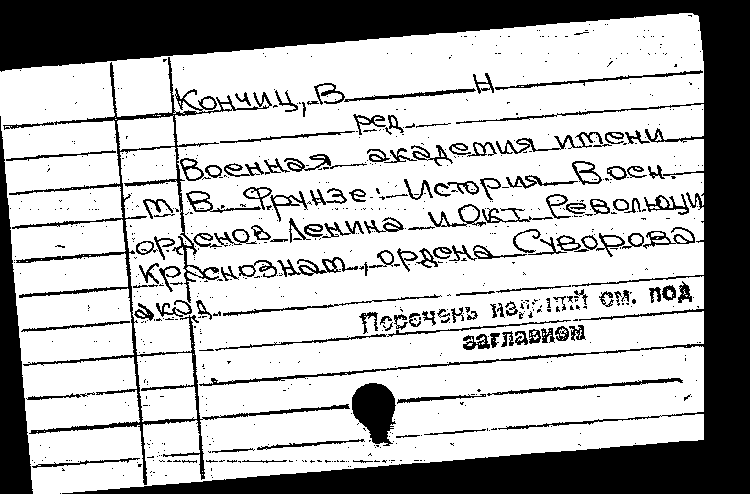 Кончиц, В Н
ред
Военная академия имени
М.В. Фрунзе: История Воен.
орденов Ленина и Окт. Революци
Краснознам, ордена Суворова
акад.
Перечень изданий см. под
заглавием